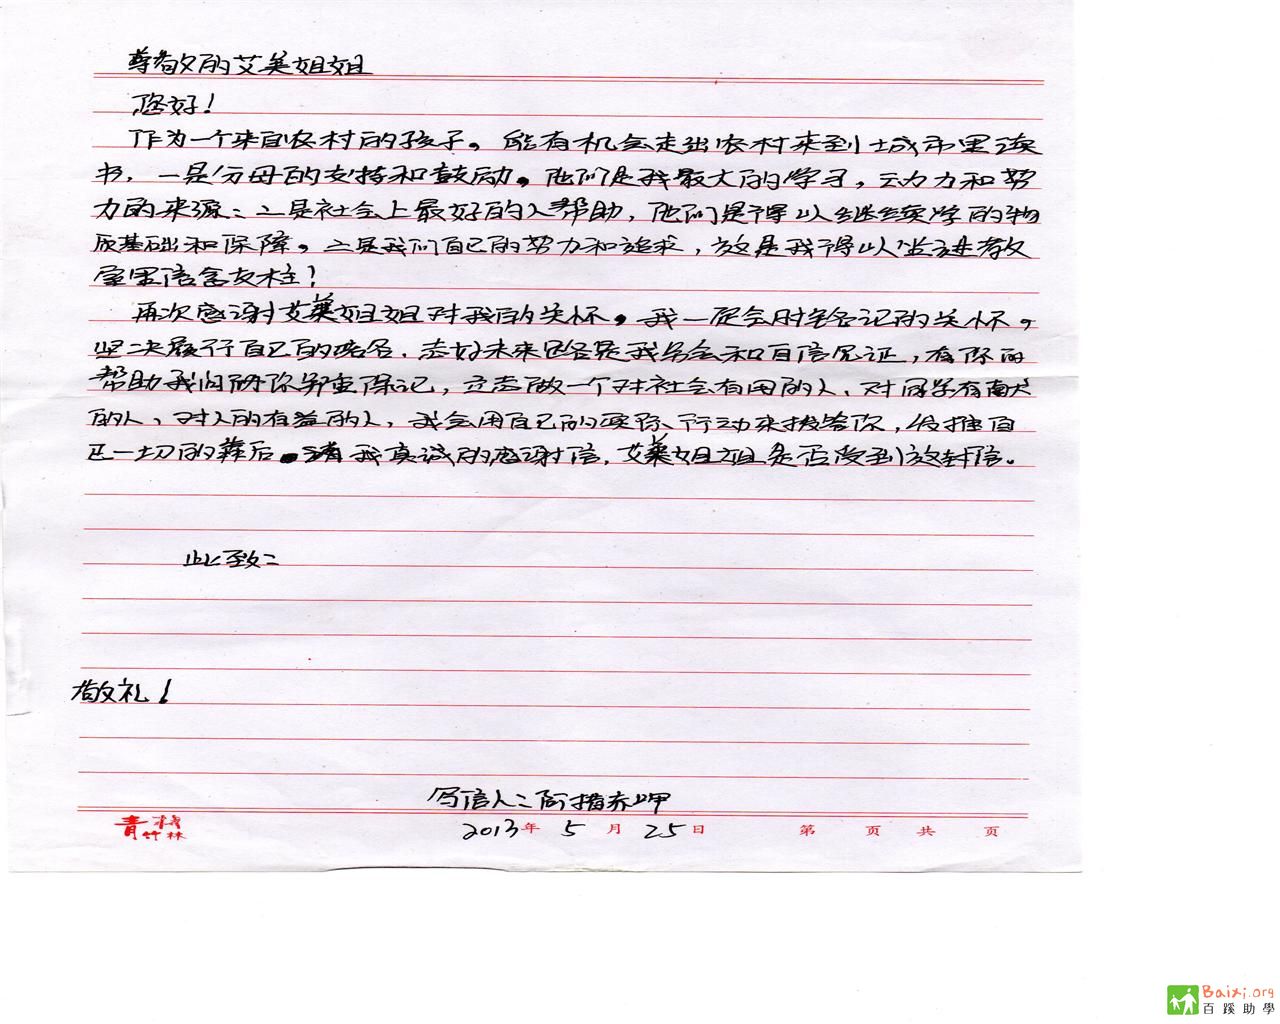 尊敬的艾美姐姐
您好！
作为一个来自农村的孩子。能有机会走出农村来到城市里读
书，一是父母的支持和鼓励。他们是我最大的学习，动力和努
力的来源；二是社会上最好的人帮助，他们是得以继续学的物
质基础和保障。三是我们自己的努力和追求，这是我得以坐进教
室里
再次感谢艾美姐姐对我的关怀。我一定会时的关怀，
坚决履行自己的未来是我和自信见证，有你的
帮助我们，立志做一个对社会有用的人、对同学有
的人、对人的有益的人，我会用自己的实际行动来报答你，
一切的。我真诚的感谢信，艾美姐姐是否受到这封信。
此致：
敬礼！
写信人：阿措
2013年 5 月 25日 第 页 共 页
青 竹林
Baixi.org
百蹊助學